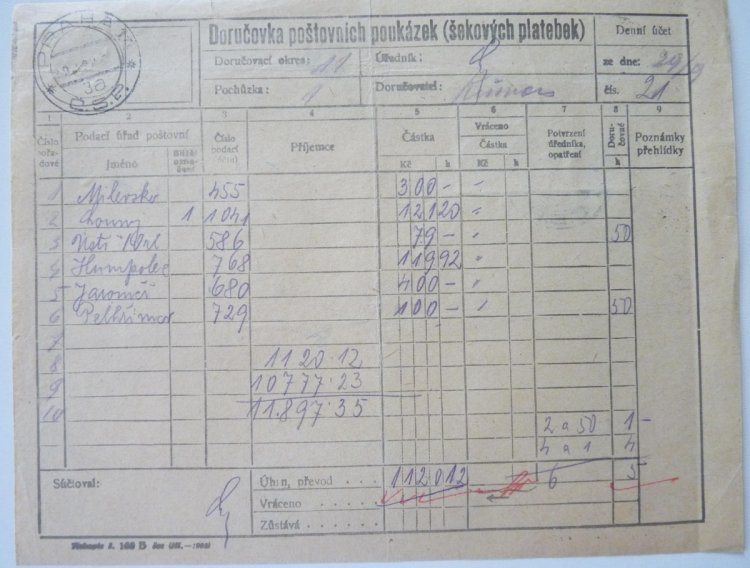 Doručovka poštovních poukázek (šekových platebek)
Denní účet
Doručovací okres: 11 Úředník:
ze dne: 29/9
Pochůzka: 1 Doručovatel:
čís. 21
PRAHA
36
Č.S.P.
1 2 3 4 5 6 7 8 9
Číslo pořadové
Podací úřad poštovní
Jméno
Číslo podací
Příjemce
Částka
Kč h
Vráceno
Částka
Kč h
Potvrzení úředníka, opatření
Doručovné
h
Poznámky přehlídky
1 Milevsko 455 300 -
2 Louny 1 1041 121 20
3 Ústí 586 79 - 50
4 Humpolec 768 119 92
5 Jaroměř 680 400 -
6 Pelhřimov 729 100 - 50
7
8 1120.12
9 10777.23
10 11.897.35
2 a 50 1 -
4 a 1 4
Súčtoval:
Úhrn, převod . . . . 1120 12 6 5
Vráceno . . . . . . .
Zůstává . . . . . . .